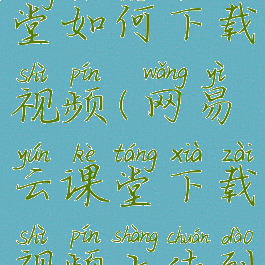 堂如何下载
shì pín wǎng yì
视频(网易
yún kè táng xià zài
云课堂下载
shì pín shàng chuán dào
视频上传到